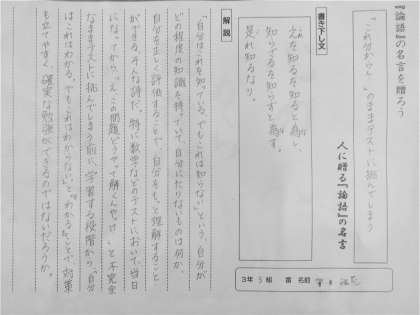 『論語』の名言を贈ろう
「これ分からん…」のままテストに挑んでしまう
人に贈る『論語』の名言
3年5組 番 名前
書き下し文
之を知るを知ると為し、
知らざるを知らずと為す。
是れ知るなり。
解説
「自分はこれを知っている。でもこれは知らない」という、自分が
どの程度の知識を持っていて、自分にたりないものは何か、
自分を正しく評価することで、自分をもっと理解すること
ができる。そんな話だ。特に数学などのテストにおいて、当日
になってから「え、この問題どうやって解くんやっけ」と不完全
なままテストに挑んでしまう前に、学習する段階から「自分
はこれはわかる。でもこれはわからない」と"わかる"ことで、対策
も立てやすく、確実な勉強ができるのではないだろうか。